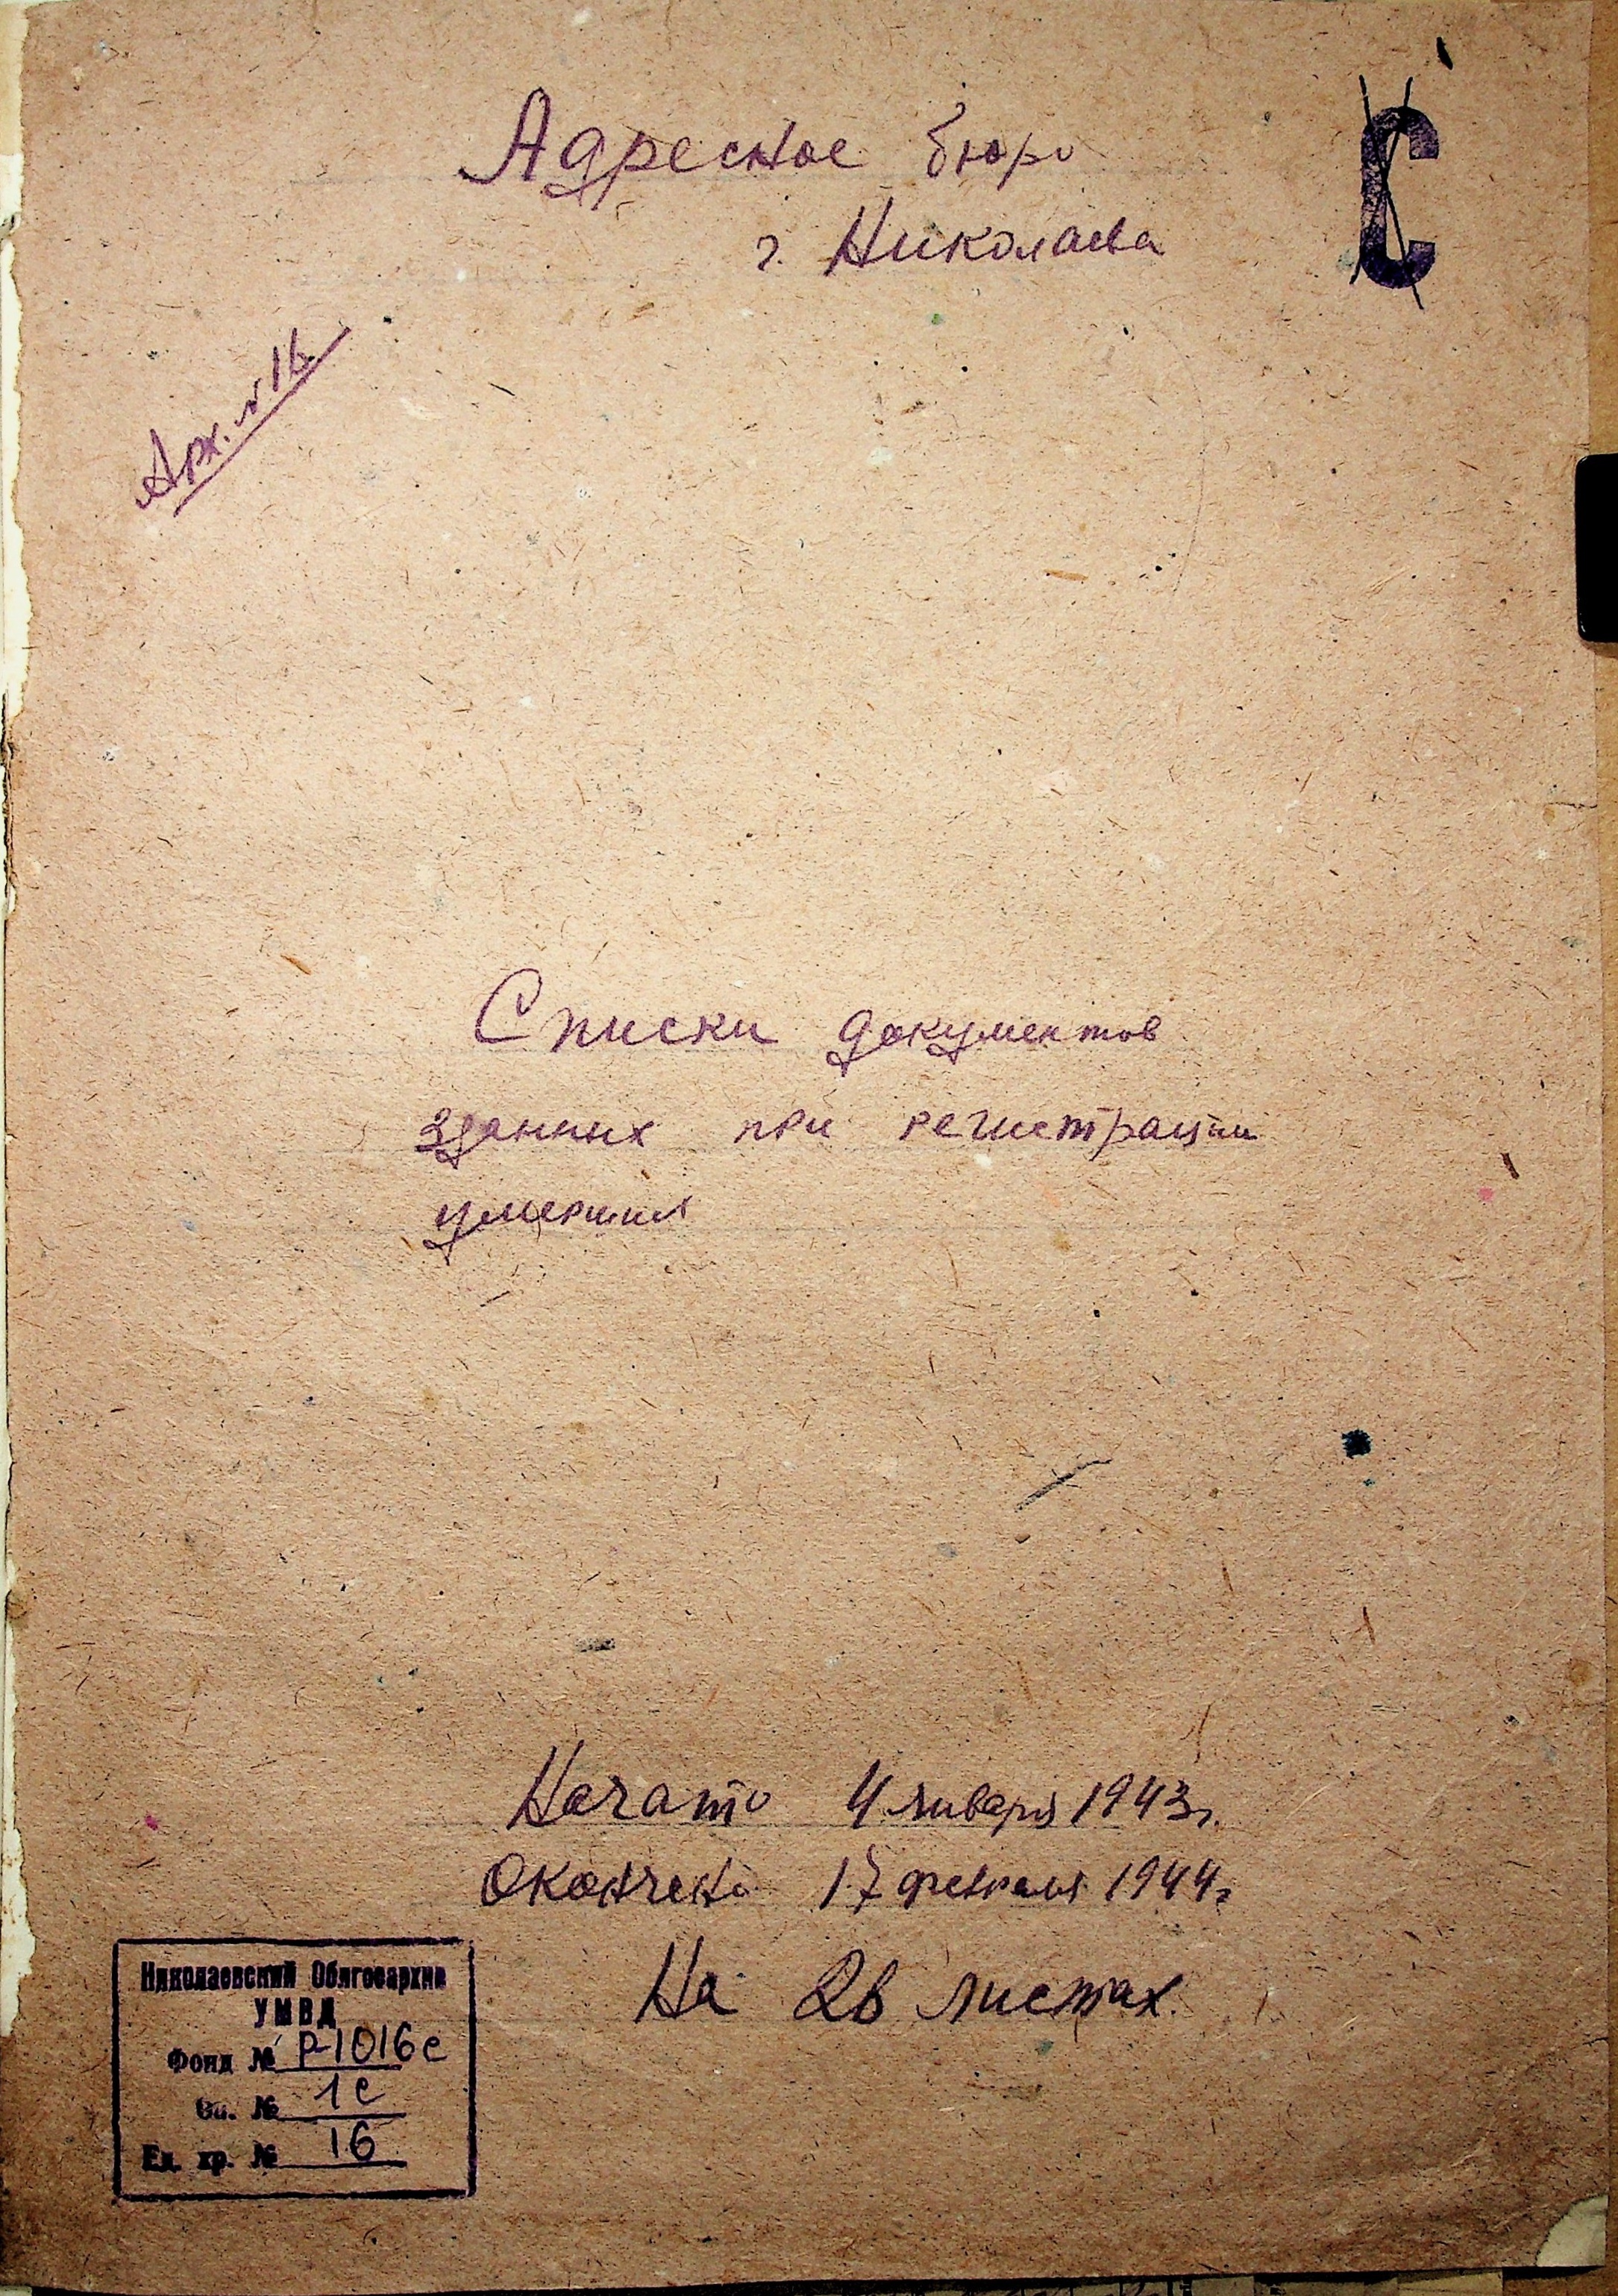 С
Адресное бюро
г. Николаева
Арх. № 16
Списки документов
зданных при регистрации
умерших
Начато 4 января 1943г.
Окончено 17 февраля 1944г
На 26 листах.
Николаевский Облгосархив
УМВД
Фонд № Р-1016с
Оп. № 1с
Ед. хр. № 16